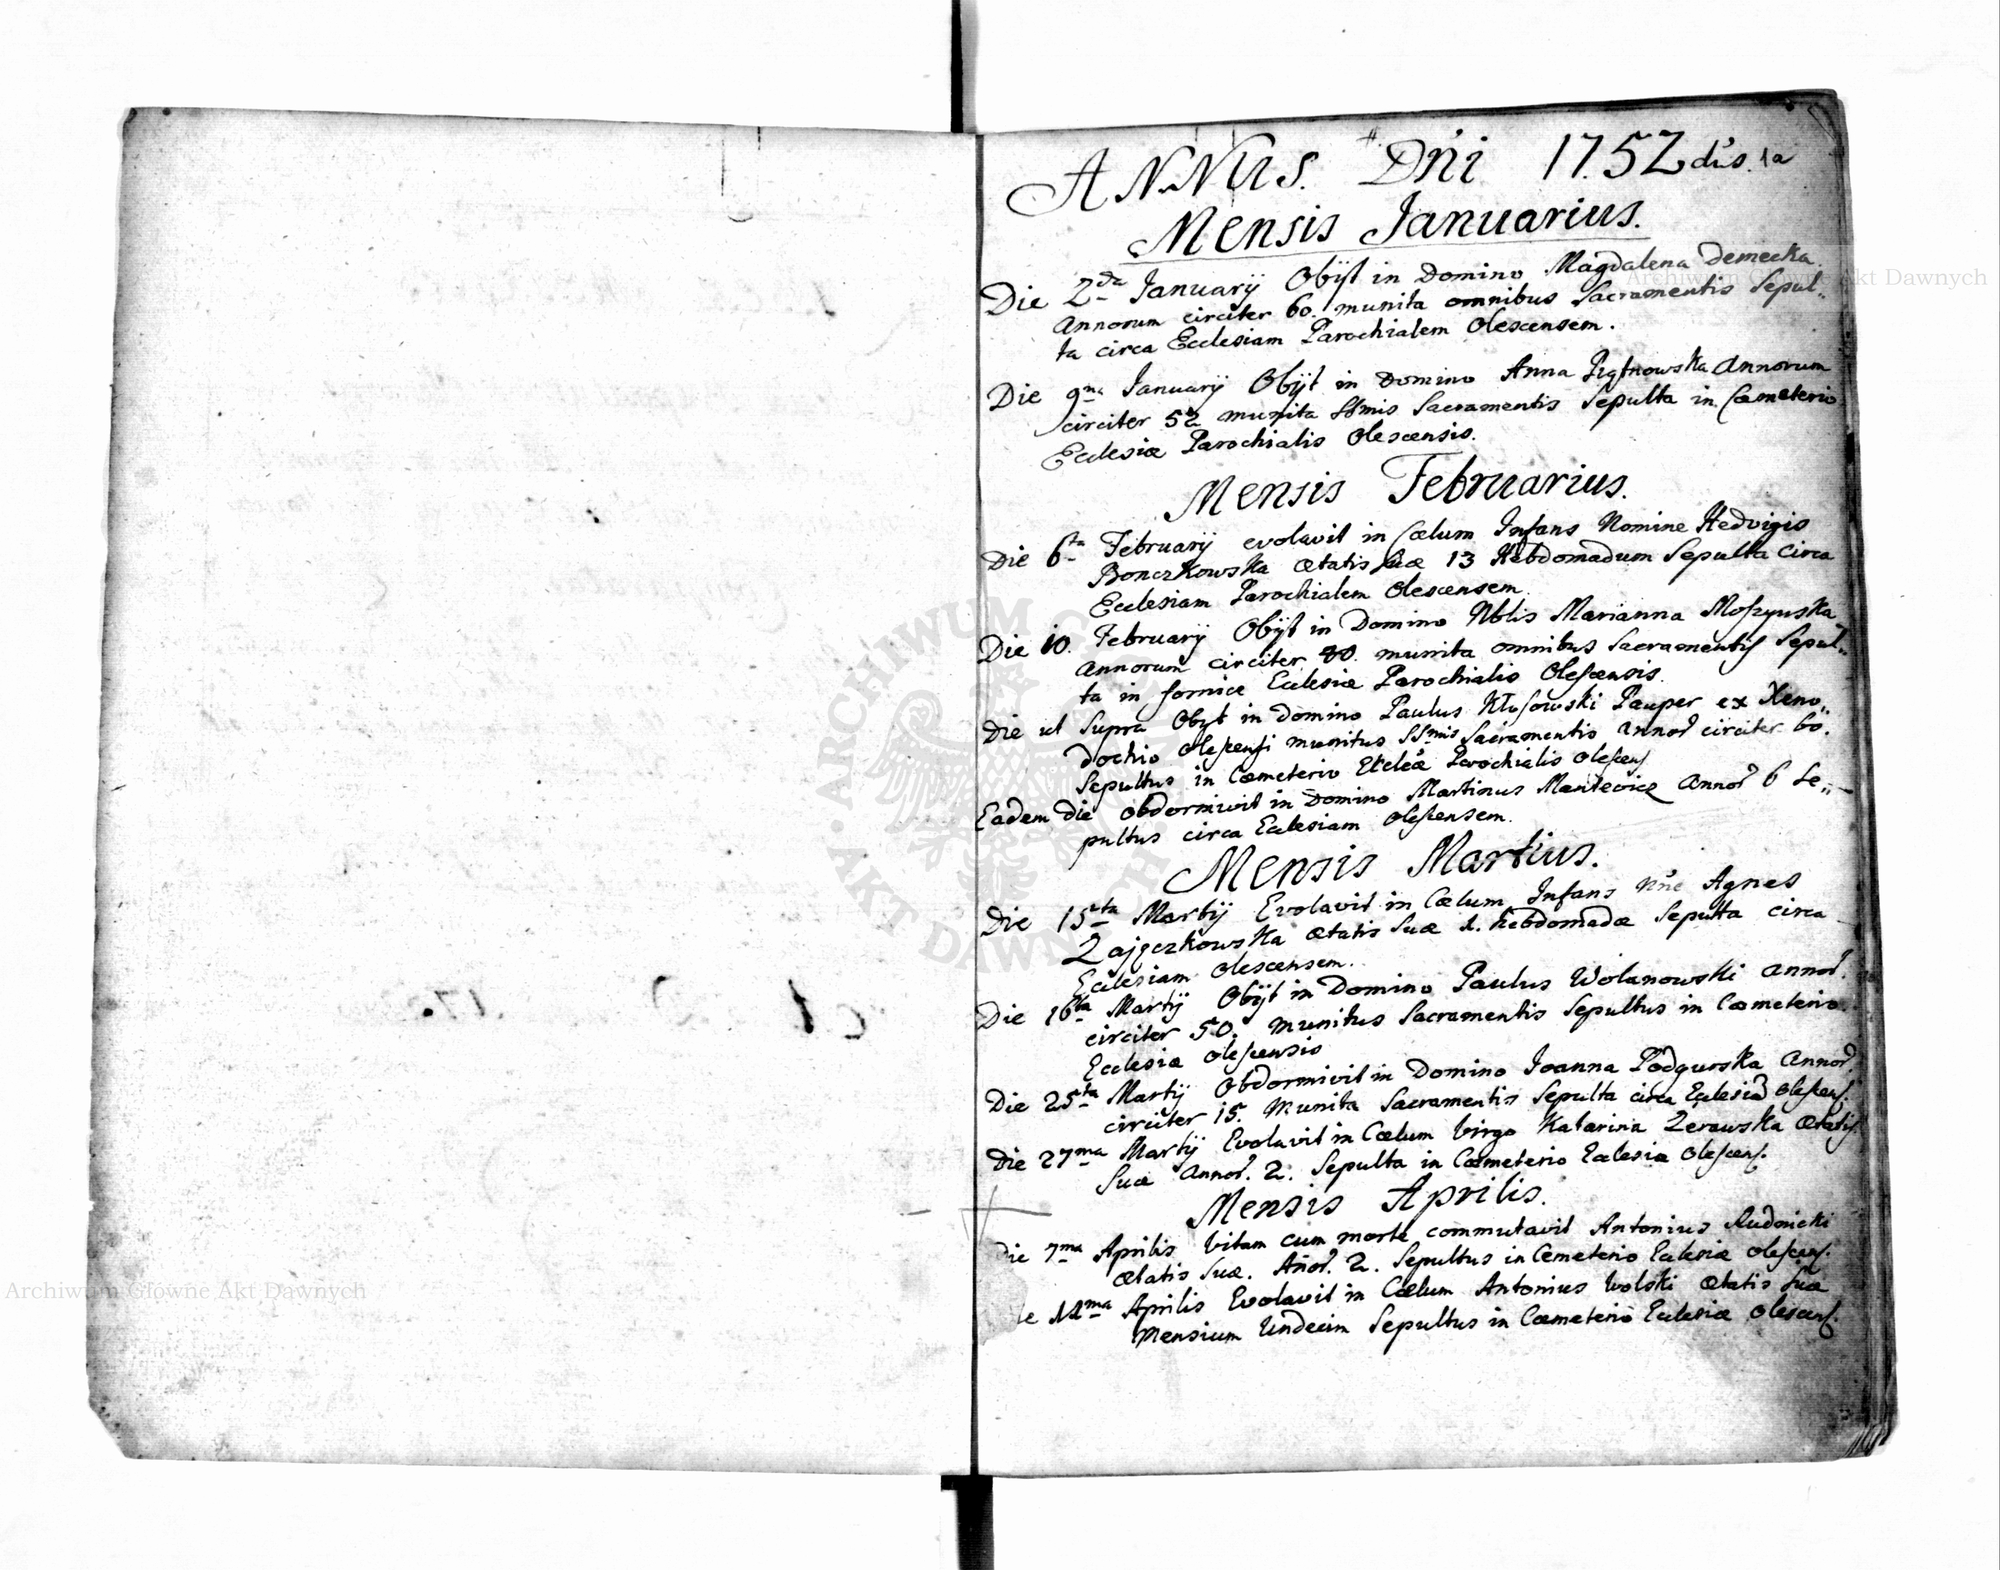 ANNUS. Dńi 1752 dus. 1a
Mensis Ianuarius.
Die 2da Ianuarij Obijt in Domino Magdalena Demecka
Annorum circiter 60. munita omnibus Sacramentis Sepul„
ta circa Ecclesiam Parochialem Olescensem.
Die 9na Ianuarij Obijt in Domino Anna Piątnowska Annorum
circiter 52 munita SSmis Sacramentis Sepulta in Cœmeterio
Ecclesiæ Parochialis Olescensis.
Mensis Februarius.
Die 6ta Februarij evolavit in Cœlum Infans Nomine Hedvigis
Bonczkowska ætatis suæ 13 Hebdomadum Sepulta circa
Ecclesiam Parochialem Olescensem.
Die 10. Februarij Obijt in Domino Nblis Marianna Moszyńska
Annorum circiter munita omnibus Sacramentis Sepul„
ta in fornice Ecclesiæ Parochialis Olescensis.
Die ut Supra Obyt in Domino Paulus Kłosowski Pauper ex Xeno„
dochio Olescensi munitus SSmis Sacramentis Annor̃ circiter 60.
Sepultus in Cœmeterio Eccleæ Parochialis Olescens
Eadem die Obdormivit in Domino Martinus Mantewicz Annor̃ 6 Se„
pultus circa Ecclesiam Olescensem.
Mensis Martius.
Die 15ta Martij Evolavit in Cœlum Infans Nne Agnes
Zajączkowska ætatis suæ 1. hebdomadæ Sepulta circa
Ecclesiam Olescensem.
Die 16ta Martij Obijt in Domino Paulus Wolanowski Annor̃.
circiter 50. Munitus Sacramentis Sepultus in Cœmeterio
Ecclesiæ Olescensis
Die 25ta Martij Obdormivit in Domino Joanna Podgurska Annor̃.
circiter 15. Munita Sacramentis Sepulta circa Ecclesiã Olescens.
Die 27ma Martij Evolavit in Cœlum Virgo Katarina Żerawska ætatis
suæ Annor̃. 2. Sepulta in Cœmeterio Ecclesiæ Olescens.
Mensis Aprilis.
Die 7ma Aprilis Vitam cum morte commutavit Antonius Rudnicki
ætatis suæ. Añor̃. 2. Sepultus in Cemeterio Ecclesiæ Olescens.
e 14ma Aprilis Evolavit in Cœlum Antonius Wolski ætatis suæ
Mensium Undecim Sepultus in Cœmeterio Ecclesiæ Olescens.
Archiwum Główne Akt Dawnych
Archiwum Główne Akt Dawnych
ARCHIWUM GŁÓWNE AKT DAWNYCH